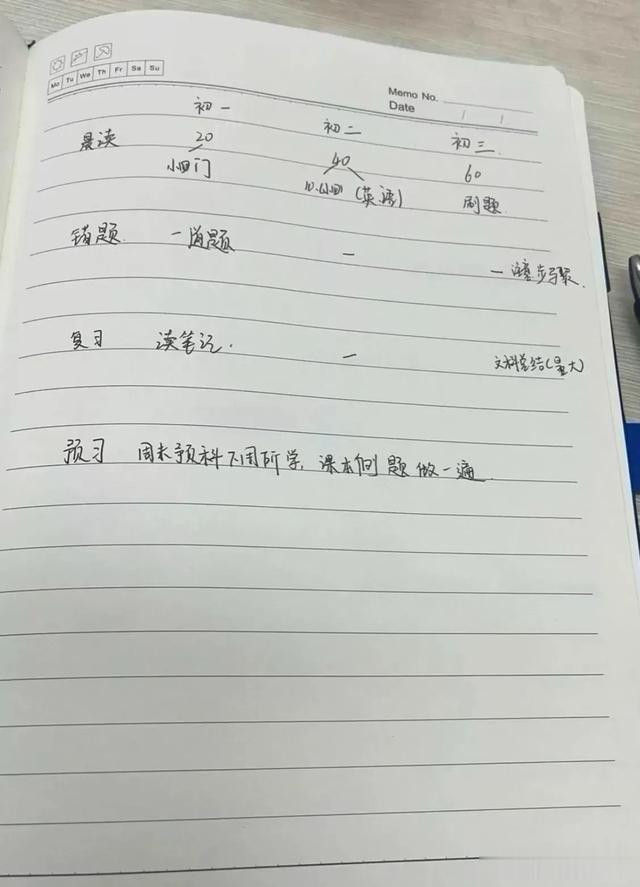 Mo Tu We Th Fr Sa Su
Memo No.
Date / /
初一 初二 初三
晨读 20 40 60
小四门 小四门(英语) 刷题
错题 一道题 一 一 步骤.
复习 读笔记. 一 文科总结(量大)
预习 周末预科下周所学,课本例题做一遍